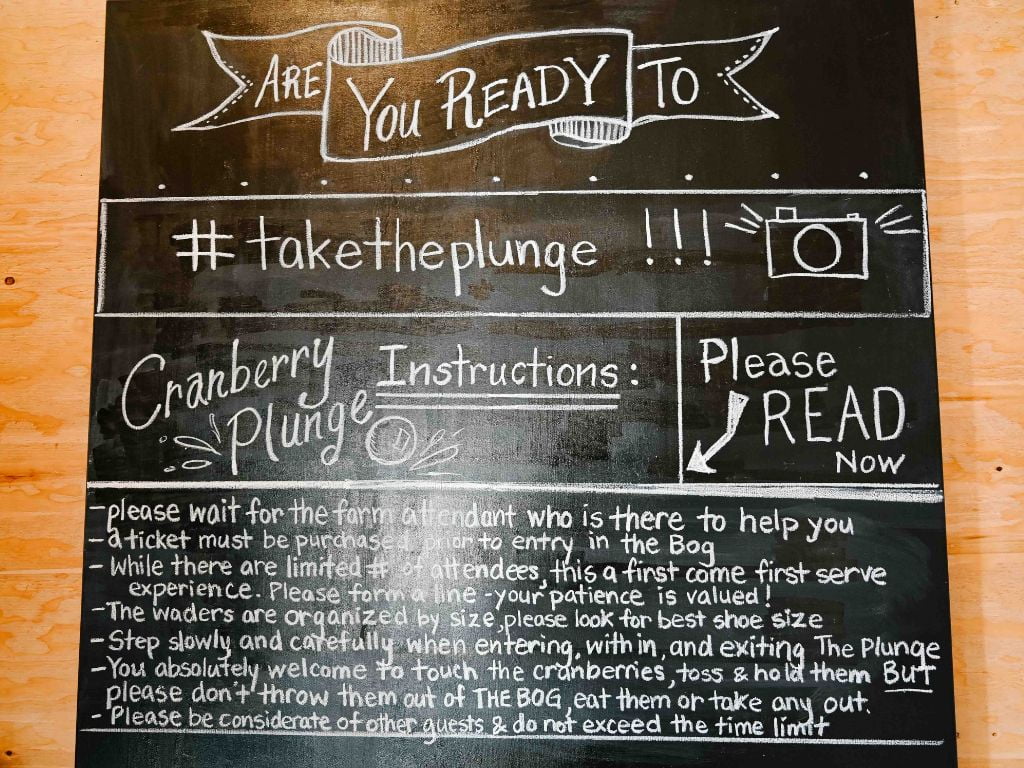 ARE YOU READY TO
#taketheplunge !!!
Cranberry Plunge
Instructions:
Please READ NOW
- please wait for the farm attendant who is there to help you
- a ticket must be purchased prior to entry in the Bog
- While there are limited # of attendees, this a first come first serve
experience. Please form a line - your patience is valued!
- The waders are organized by size, please look for best shoe size
- Step slowly and carefully when entering, with in, and exiting The Plunge
- You absolutely welcome to touch the cranberries, toss & hold them BUT
please don't throw them out of THE BOG, eat them or take any out.
- Please be considerate of other guests & do not exceed the time limit